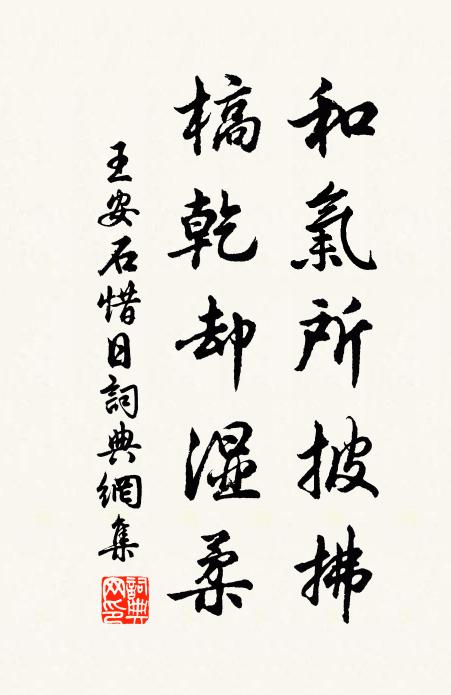 和氣所披拂
槁乾却濕柔
王安石惜日詞典網集
詞典網印